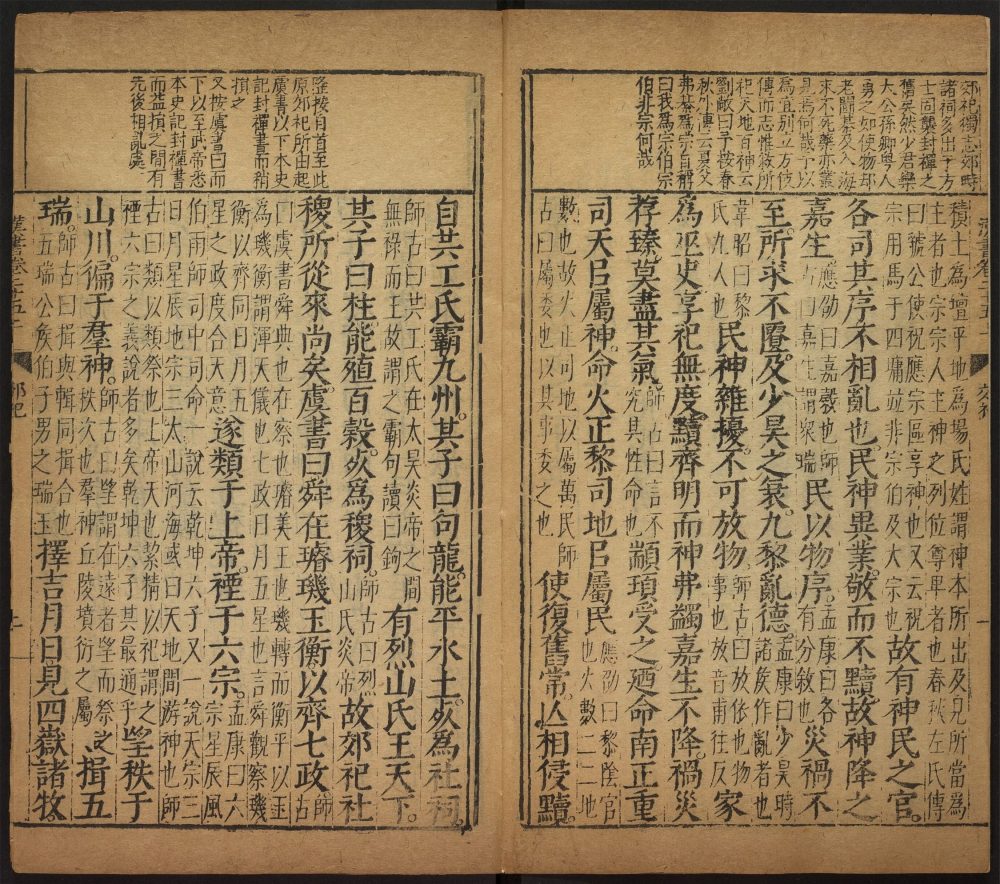 郊祀獨志郊畤
諸祠多出于方
士固襲封禪之
舊矣然少君欒
大公孫卿粵人
勇之如使物却
老鬭棊及入海
求不死藥亦叢
見焉何哉予以
為宜別立方伎
傳而志惟敘所
祀天地百神云
劉敞曰予按春
秋外傳云夏父
弗綦為宗自稱
曰我為宗伯宗
伯非宗何哉
積土為壇平地為場氏姓謂神本所出及見所當為主者也宗宗人主神之列位尊卑者也春秋左氏傳
曰虢公使祝應宗區享神也又云祝宗用馬于四墉並非宗伯及大宗也故有神民之官。
各司其序不相亂也。民神異業敬而不黷。故神降之
嘉生。應劭曰嘉穀也師古曰嘉生謂眾瑞民以物序。孟康曰各有分敘也災禍不
至。所求不匱。及少昊之衰。九黎亂德。孟康曰少昊時諸侯作亂者也
韋昭曰黎氏九人也民神雜擾。不可放物。師古曰放依也物事也放音甫往反家
為巫史享祀無度。黷齊明而神弗蠲嘉生不降。禍災
荐臻。莫盡其氣。師古曰言不究其性命也顓頊受之。廼命南正重
司天㠯屬神。命火正黎司地㠯屬民。應劭曰黎陰官也火數二二地
數也故火正司地以屬萬民師古曰屬委也以其事委之也使復舊常。亾相侵黷。
漢書卷二十五上
郊祀
一
隆按自首至此
原郊祀所由起
虞書以下本史
記封禪書而稍
損之
又按虞書曰而
下以至武帝悉
本史記封禪書
而益損之間有
先後相亂處
自共工氏霸九州。其子曰句龍。能平水土。死為社祠。
師古曰共工氏在太昊炎帝之間無祿而王故謂之霸句讀曰鉤有烈山氏王天下。
其子曰柱能殖百穀。死為稷祠。師古曰烈山氏炎帝故郊祀社
稷所從來尚矣。虞書曰舜在璿璣玉衡以齊七政。師古
曰虞書舜典也在察也璿美玉也璣轉而衡平以玉為璣衡謂渾天儀也七政日月五星也言舜觀察璣
衡以齊同日月五星之政度合天意遂類于上帝。禋于六宗。孟康曰六宗星辰風
伯雨師司中司命一說云乾坤六子又一說天宗三日月星辰地宗三太山河海或曰天地間游神也師
古曰類以類祭也上帝天也絜精以祀謂之禋六宗之義說者多矣乾坤六子其最通乎朢秩于
山川。徧于羣神。師古曰朢謂在遠者朢而祭之秩次也羣神丘陵墳衍之屬揖五
瑞。師古曰揖與輯同揖合也五瑞公侯伯子男之瑞玉擇吉月日見四嶽諸牧。
郊祀
上